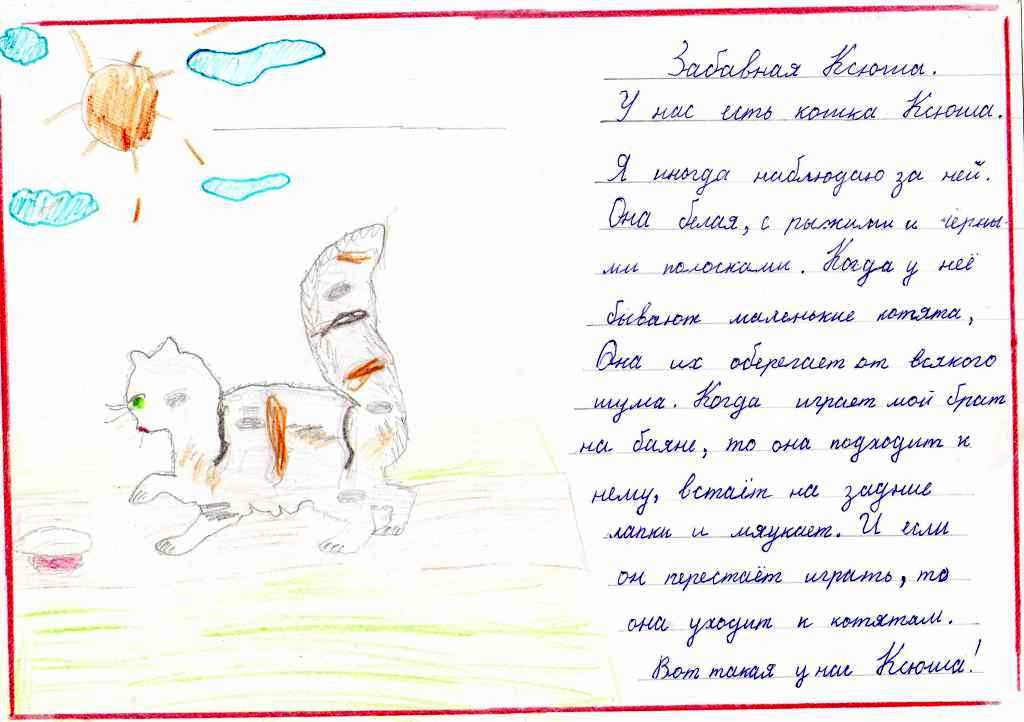 Забавная Ксюша.
У нас есть кошка Ксюша.
Я иногда наблюдаю за ней.
Она белая, с рыжими и чёрны-
ми полосками. Когда у неё
бывают маленькие котята,
Она их оберегает от всякого
шума. Когда играет мой брат
на баяне, то она подходит к
нему, встаёт на задние
лапки и мяукает. И если
он перестаёт играть, то
она уходит к котятам.
Вот такая у нас Ксюша!